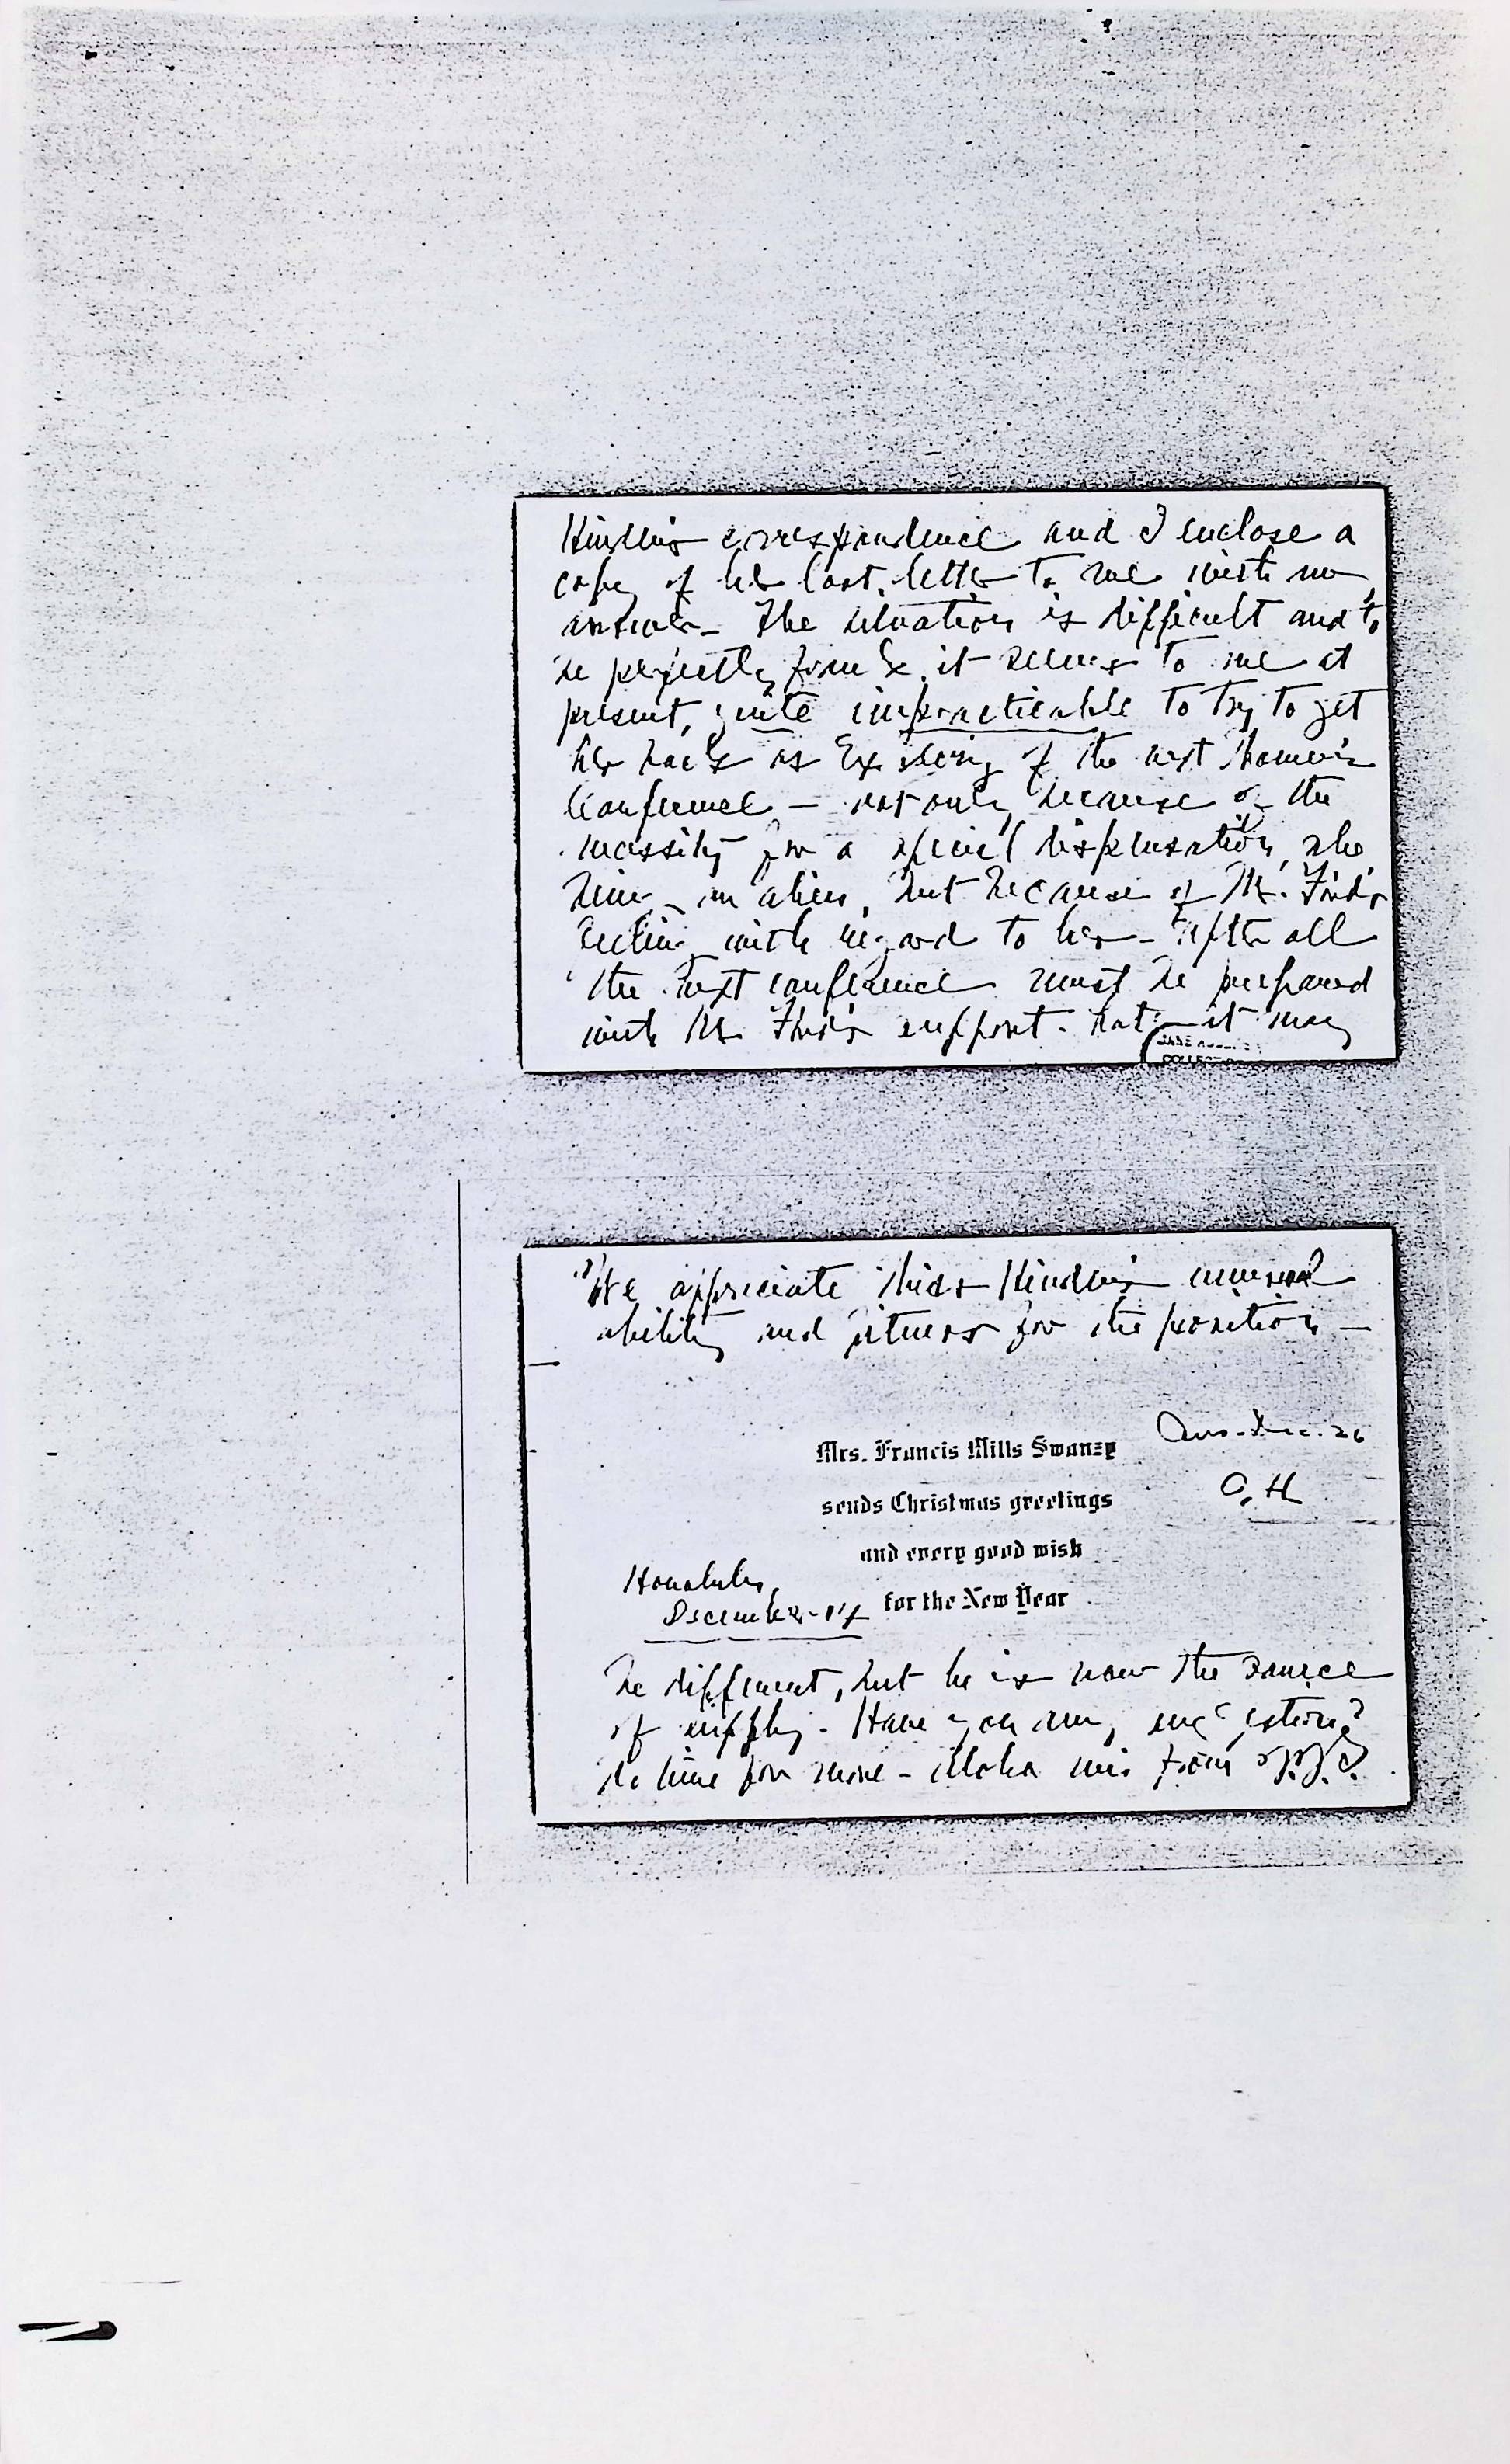 correspondence and I enclose a
copy of her last letter to me with my
answer. The situation is difficult and to
be perfectly frank, it seems to me at
present, quite impracticable to try to get
her back as Ex. Secy of the next Women's
Conference — not only because of the
necessity for a special dispensation, she
being an alien, but because of Mr. Ford's
feeling with regard to her — After all
the next conference must be prepared
with Mr. Ford's support. Later it may
JANE
COLLECT
We appreciate Miss Hinder's unusual
ability and fitness for the position —
Ans. Dec. 26
Mrs. Francis Mills Swanzy
sends Christmas greetings
and every good wish
for the New Year
Honolulu,
December
be different, but he is now the source
of supply. Have you any suggestions?
No time for more — Aloha nui from